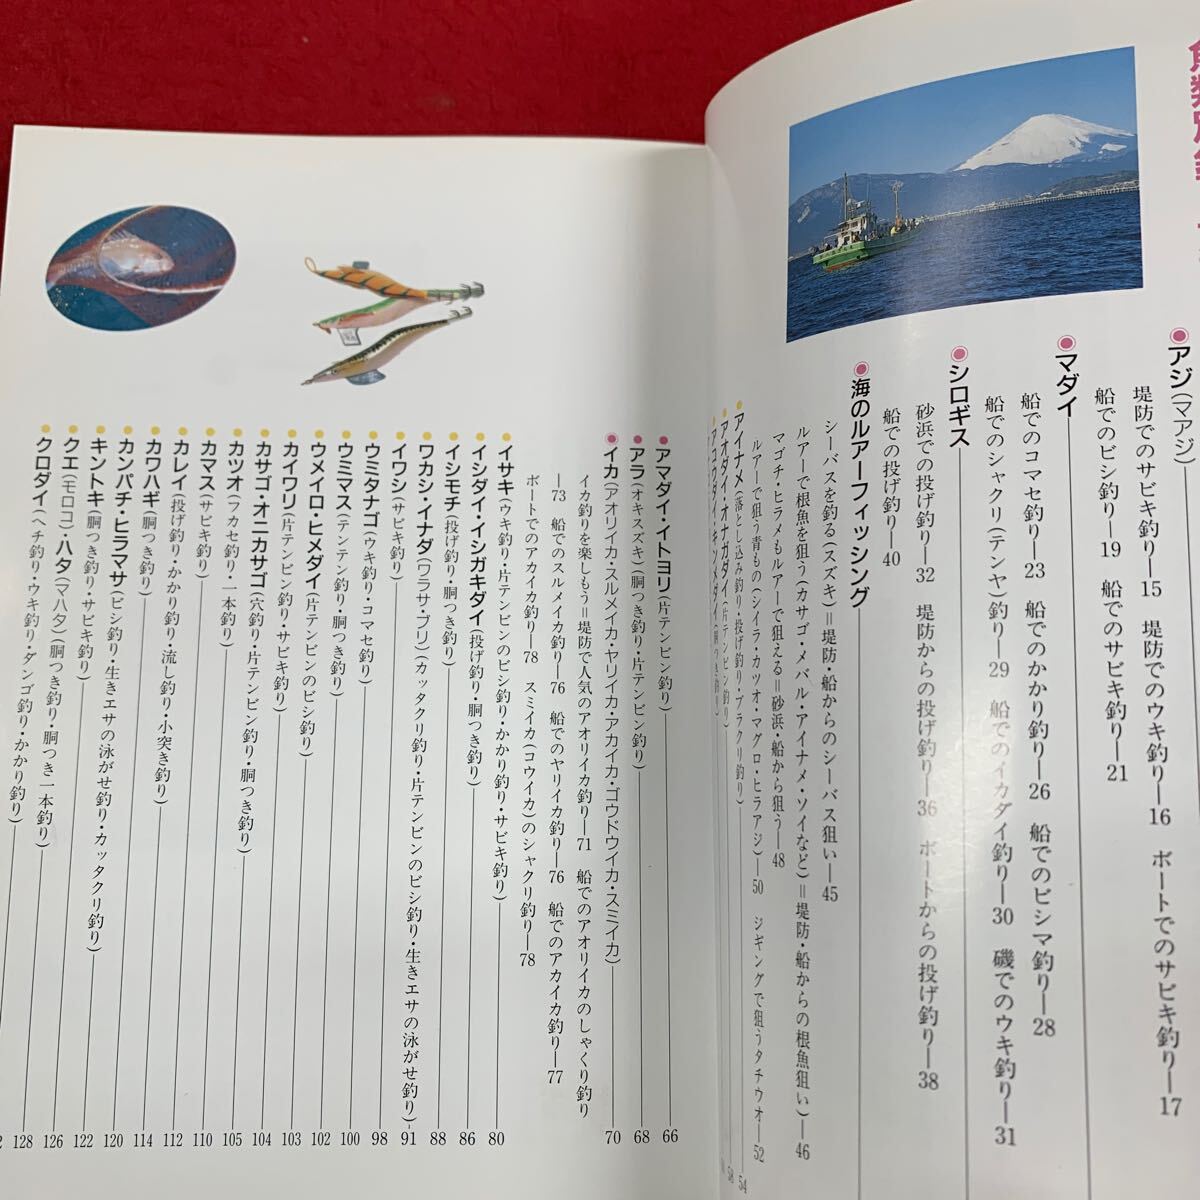 アジ(マアジ)
堤防でのサビキ釣り―15　堤防でのウキ釣り―16　ボートでのサビキ釣り―17
船でのビシ釣り―19　船でのサビキ釣り―21
マダイ
船でのコマセ釣り―23　船でのかかり釣り―26　船でのビシマ釣り―28
船でのシャクリ(テンヤ)釣り―29　船でのイカダイ釣り―30　磯でのウキ釣り―31
シロギス
砂浜での投げ釣り―32　堤防からの投げ釣り―36　ボートからの投げ釣り―38
船での投げ釣り―40
海のルアーフィッシング
シーバスを釣る(スズキ)＝堤防・船からのシーバス狙い―45
ルアーで根魚を狙う(カサゴ・メバル・アイナメ・ソイなど)＝堤防・船からの根魚狙い―46
マゴチ・ヒラメもルアーで狙える＝砂浜・船から狙う―48
ルアーで狙う青もの(シイラ・カツオ・マグロ・ヒラアジ)―50　ジギングで狙うタチウオ―52
アイナメ(落とし込み釣り・投げ釣り・ブラクリ釣り)―54
アオダイ・オナガダイ(片テンビン釣り)―58
アコウダイ・キンメダイ(胴つき釣り)
アマダイ・イトヨリ(片テンビン釣り)―66
アラ(オキスズキ)(胴つき釣り・片テンビン釣り)―68
イカ(アオリイカ・スルメイカ・ヤリイカ・アカイカ・ゴウドウイカ・スミイカ)―70
イカ釣りを楽しもう＝堤防で人気のアオリイカ釣り―71　船でのアオリイカのしゃくり釣り
―73　船でのスルメイカ釣り―76　船でのヤリイカ釣り―76　船でのアカイカ釣り―77
ボートでのアカイカ釣り―78　スミイカ(コウイカ)のシャクリ釣り―78
イサキ(ウキ釣り・片テンビンのビシ釣り・かかり釣り・サビキ釣り)―80
イシダイ・イシガキダイ(投げ釣り・胴つき釣り)―86
イシモチ(投げ釣り・胴つき釣り)―88
ワカシ・イナダ(ワラサ・ブリ)(カッタクリ釣り・片テンビンのビシ釣り・生きエサの泳がせ釣り)―91
イワシ(サビキ釣り)―98
ウミタナゴ(ウキ釣り・コマセ釣り)―100
ウミマス(テンテン釣り・胴つき釣り)―102
ウメイロ・ヒメダイ(片テンビンのビシ釣り)―103
カイワリ(片テンビン釣り・サビキ釣り)―104
カサゴ・オニカサゴ(穴釣り・片テンビン釣り・胴つき釣り)―105
カツオ(フカセ釣り・一本釣り)―110
カマス(サビキ釣り)―112
カレイ(投げ釣り・かかり釣り・流し釣り・小突き釣り)―114
カワハギ(胴つき釣り)―120
カンパチ・ヒラマサ(ビシ釣り・生きエサの泳がせ釣り・カッタクリ釣り)―122
キントキ(胴つき釣り・サビキ釣り)―126
クエ(モロコ)・ハタ(マハタ)(胴つき釣り・胴つき一本釣り)―128
クロダイ(ヘチ釣り・ウキ釣り・ダンゴ釣り・かかり釣り)